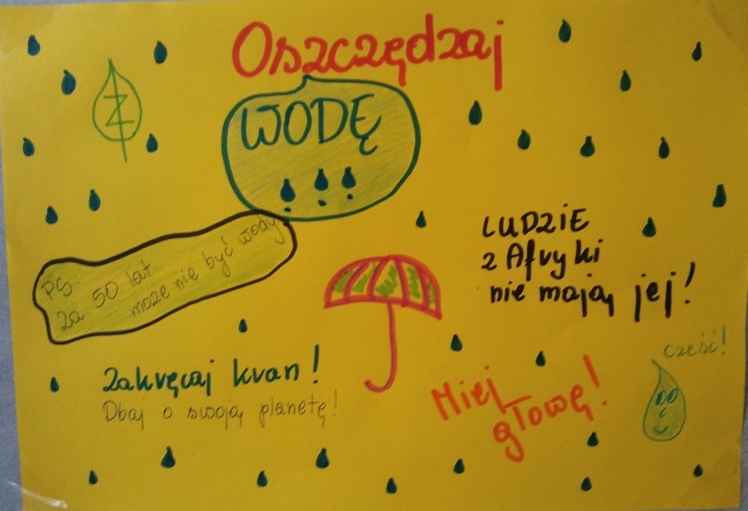 Oszczędzaj
WODĘ
PS:
Za 50 lat
może nie być wody
LUDZIE
z Afryki
nie mają jej!
Zakręcaj kran!
Dbaj o swoją planetę!
Miej
głowę!
cześć!